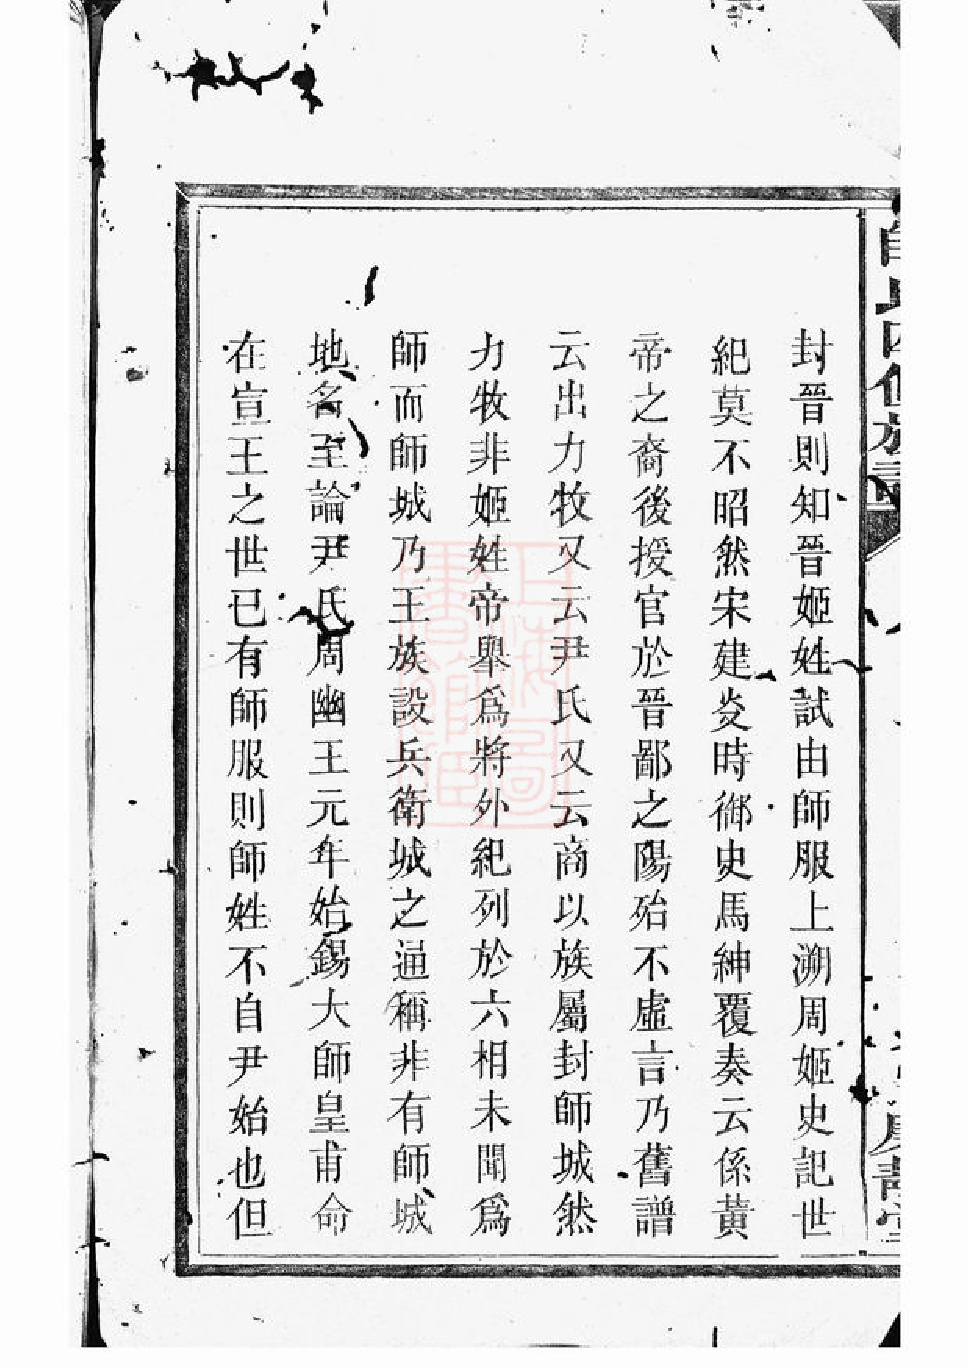 師氏四修族譜
封晉則知晉姬姓試由師服上溯周姬史記世
紀莫不昭然宋建炎時御史馬紳覆奏云係黃
帝之裔後授官於晉鄙之陽殆不虛言乃舊譜
云出力牧又云尹氏又云商以族屬封師城然
力牧非姬姓帝舉爲將外紀列於六相未聞爲
師而師城乃王族設兵衛城之通稱非有師城
地名至論尹氏周幽王元年始錫大師皇甫命
在宣王之世已有師服則師姓不自尹始也但
上海圖書館藏